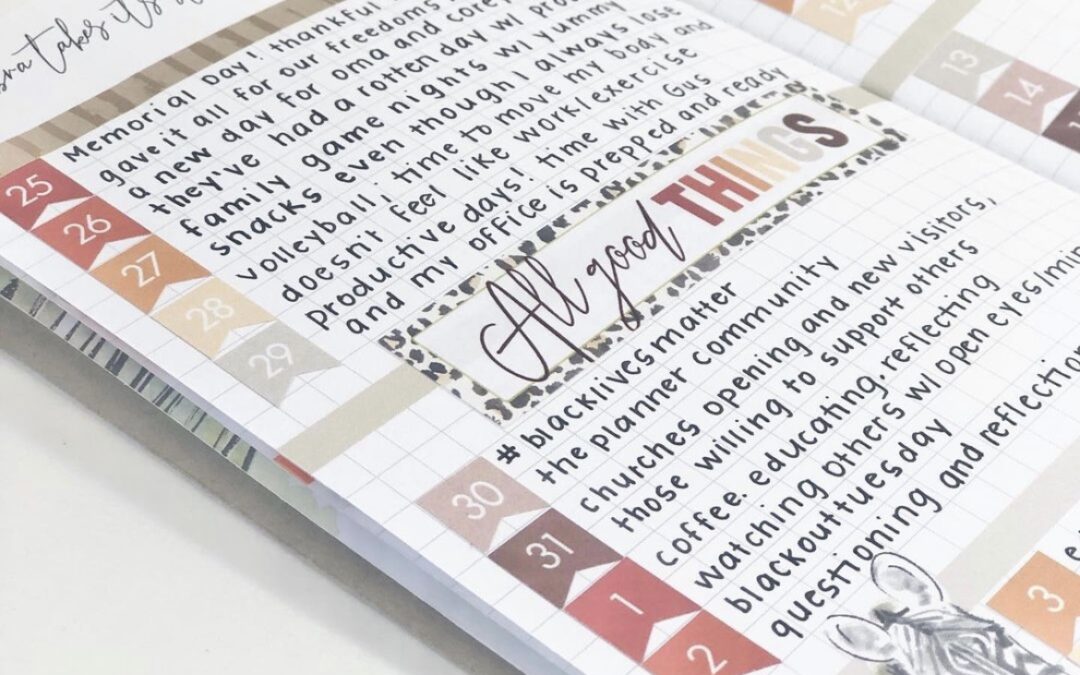 takes it's
12
13
14
25
Memorial Day! thankful
gave it all for our freedoms
26
a new day for oma and
they've had a rotten day w/
27
family game nights w/ yummy
snacks even though I always lose
28
volleyball; time to move my body and
doesn't feel like work/exercise
29
productive days! time with Gus
and my office is prepped and ready
All good THINGS
30
#blacklivesmatter
the planner community
31
churches opening and new visitors,
those willing to support others
1
coffee. educating. reflecting
watching others w/ open eyes/
2
blackouttuesday
questioning and reflection
3